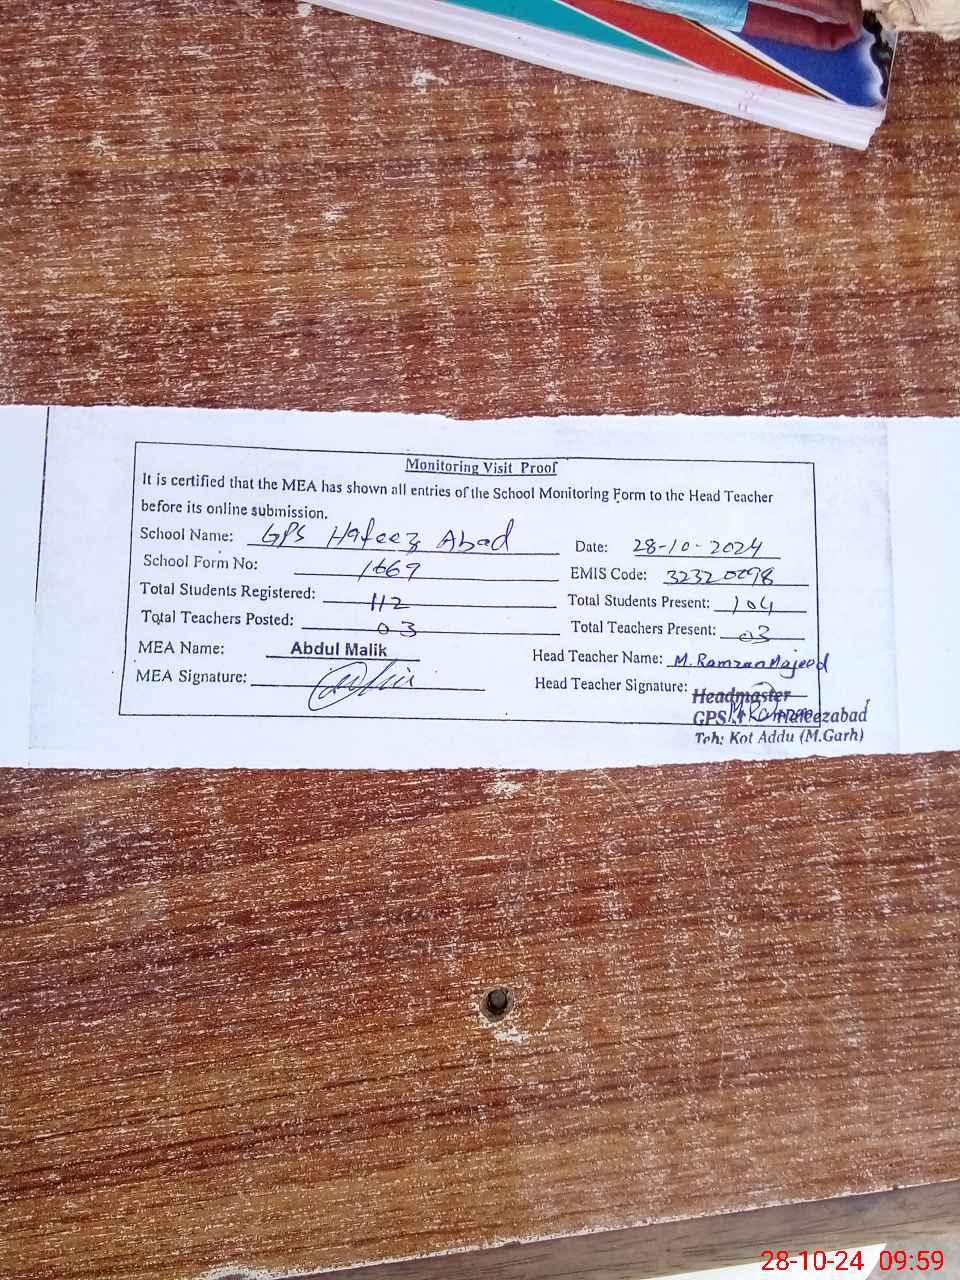 Monitoring Visit Proof
It is certified that the MEA has shown all entries of the School Monitoring Form to the Head Teacher
before its online submission.
School Name: GPS Hafeez Abad Date: 28-10-2024
School Form No: 1669 EMIS Code: 32320098
Total Students Registered: 112 Total Students Present: 104
Total Teachers Posted: 03 Total Teachers Present: 03
MEA Name: Abdul Malik Head Teacher Name: M. Ramzan Majeed
MEA Signature: Head Teacher Signature:
Headmaster
GPS Hafeezabad
Teh: Kot Addu (M.Garh)
28-10-24 09:59